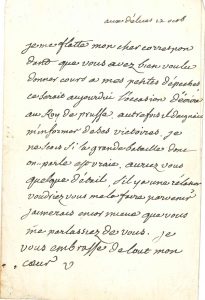 aux delices 12 oct
je me flatte mon cher correspon
dant que vous avez bien voulu
donner cours a mes petites depeches
ce serait aujourdui l'ocasion d'ecrire
au Roy de prusse autrefois il daignait
m'informer de ses victoires. je
ne scais si la grande bataille dont
on parle est vraie. auriez vous
quelque detail, s'il y a une relation
voudriez vous me la faire parvenir
j'aimerais encor mieux que vous
me parlassiez de vous. je
vous embrasse de tout mon
cœur V